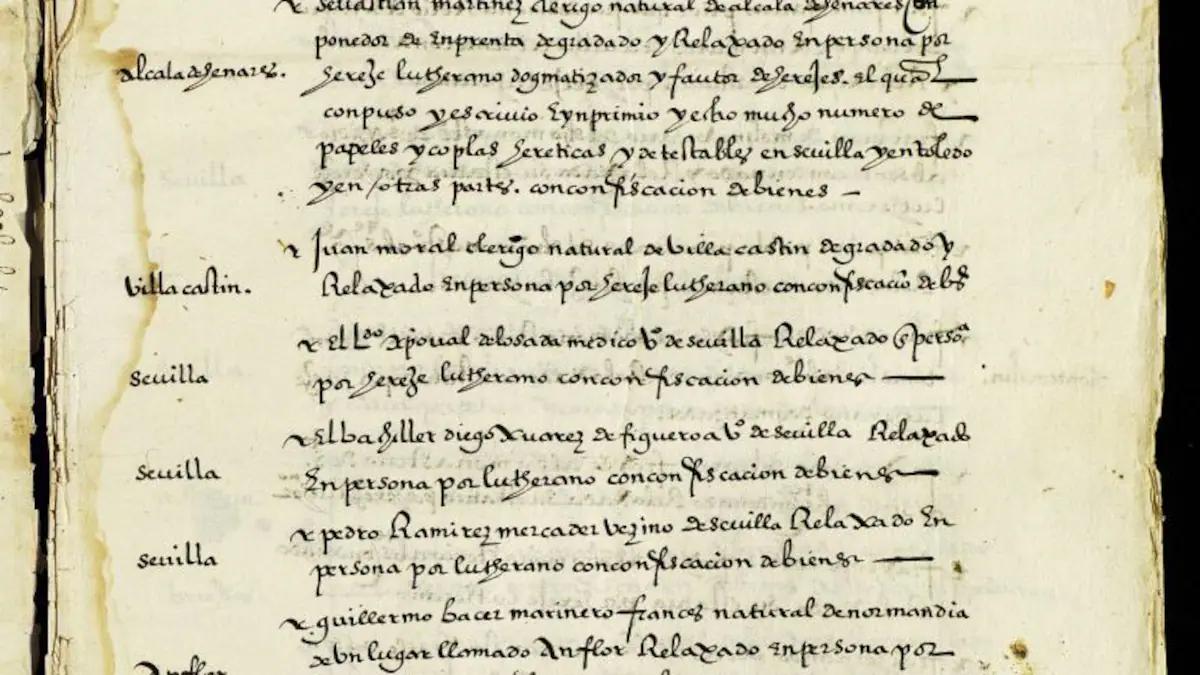 sevastian martinez clerigo natural de alcala de henares con
ponedor de enprenta degradado y Relaxado en persona por
alcala de henares.
hereje lutherano dogmatizador y fautor de herejes. el qual
conpuso y escrivio e ynprimio y echo mucho numero de
papeles y coplas hereticas y detestables en sevilla y en toledo
y en / otras partes. con confiscacion de bienes —
Juan moral clerigo natural de villa castin degradado y
villa castin.
Relaxado en persona por hereje lutherano con confiscacio de bs
El Ldo xpoval de losada medico vo de sevilla Relaxado en persoa
sevilla
por hereje lutherano con confiscacion de bienes —
El bachiller diego xuarez de figueroa vo de sevilla Relaxado
sevilla
En persona por lutherano con confiscacion de bienes —
pedro Ramirez mercader vezino de sevilla Relaxado En
sevilla
persona por lutherano con confiscacion de bienes —
guillermo bacer marinero frances natural de normandia
de un lugar llamado Anflor Relaxado en persona por
Anflor